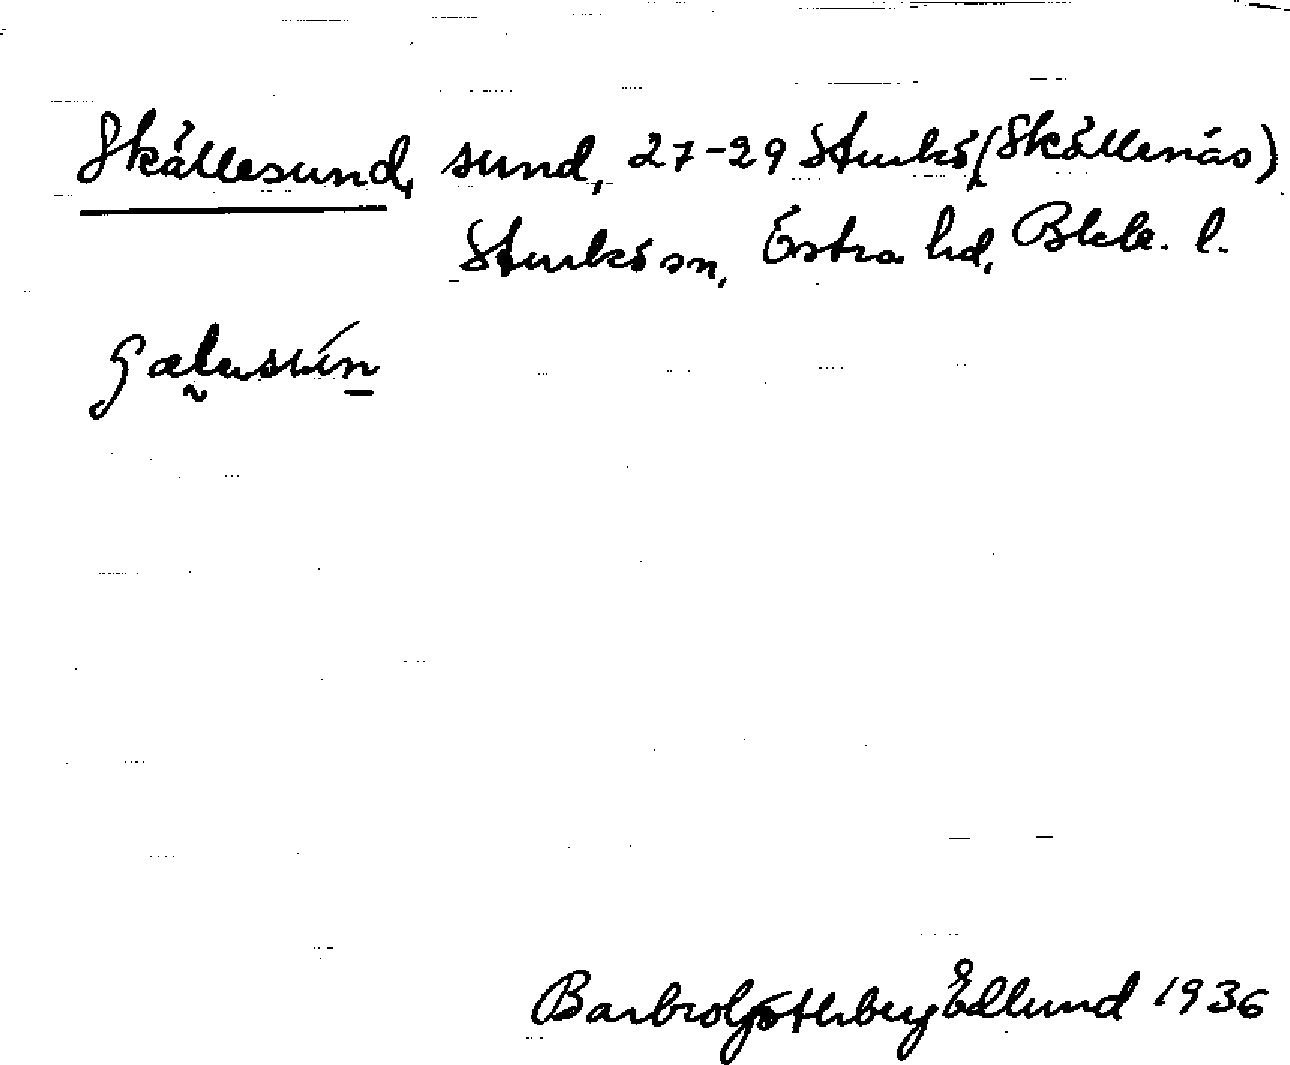 Skällesund, sund, 27-29 Sturkö (Skällenäs)
Sturkö sn, Östra hd, Blek. l.
Barbro Götherberg Edlund 1936